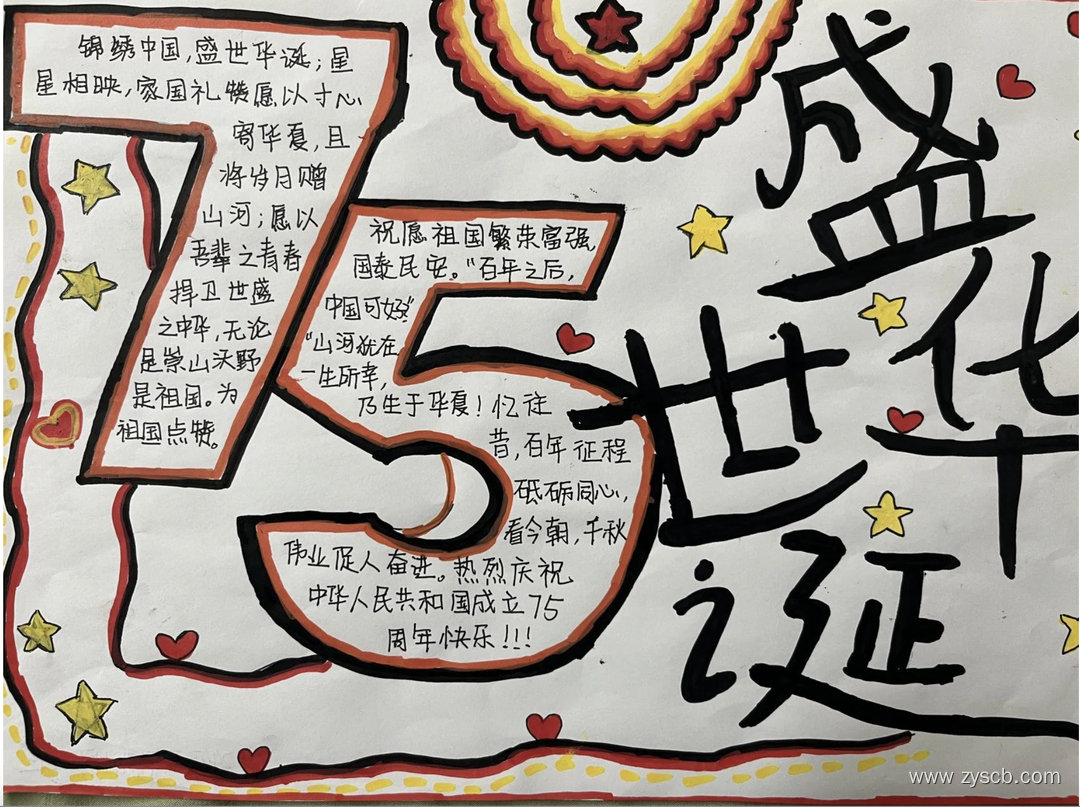 锦绣中国,盛世华诞;星
星相映,家国礼赞愿以寸心
寄华夏,且
将岁月赠
山河;愿以
吾辈之青春
捍卫世盛
之中华,无论
是崇山沃野
是祖国。为
祖国点赞。
祝愿祖国繁荣富强,
国泰民安。“百年之后,
中国可好”
“山河犹在
一生所幸,
乃生于华夏!忆往
昔,百年征程
砥砺同心,
看今朝,千秋
伟业促人奋进。热烈庆祝
中华人民共和国成立75
周年快乐!!!
75
盛世
华诞
www.zyscb.com